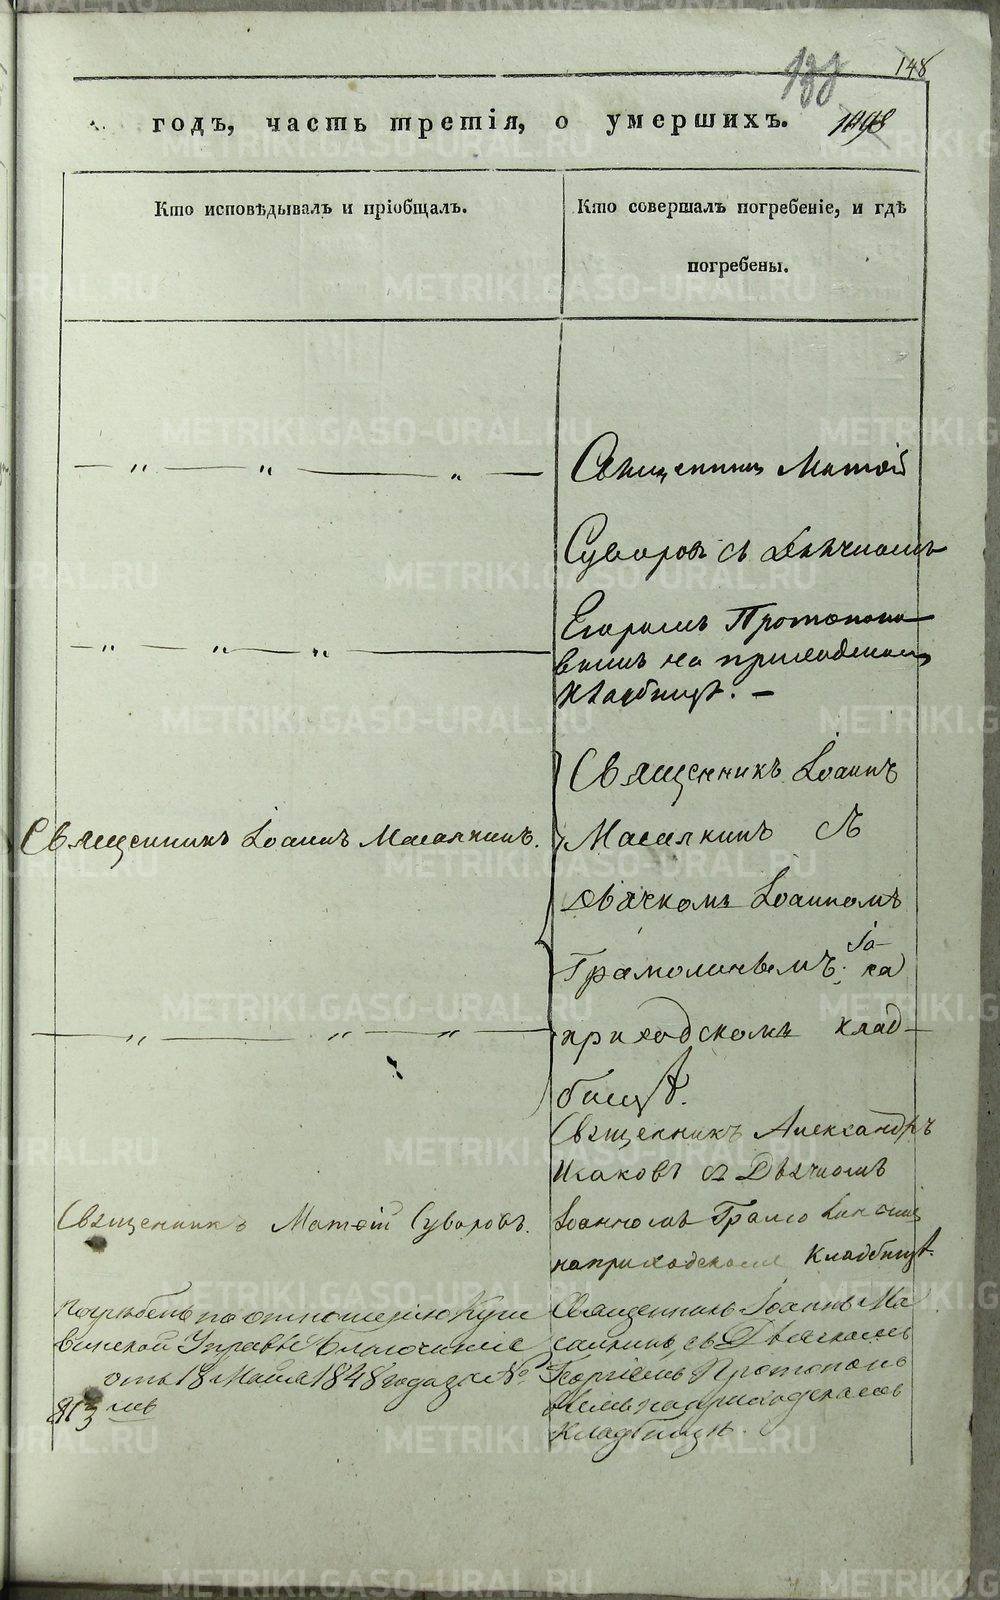 148
годъ, часть третія, о умершихъ.
Кто исповѣдывалъ и пріобщалъ.
Кто совершалъ погребеніе, и гдѣ
погребены.
Священник Матөій
Суворовъ съ Дьячкомъ
Егоромъ Протопопо
вымъ на приходскомъ
кладбищѣ. —
Священникъ Іоаннъ Масалкинъ.
Священникъ Іоаннъ
Масалкинъ съ
дьячкомъ Іоанномъ
Грамолинымъ. на
приходскомъ клад-
бищѣ.
Священникъ Матөій Суворовъ.
Священникъ Александръ
Исаковъ съ Дьячкомъ
Іоанномъ Грамолинымъ
на приходскомъ Кладбищѣ.
Погребенъ по отношенію Куш
винской Управы Благочинія
отъ 18 Мая 1848 года за №
813 мъ
Священникъ Іоаннъ Ма
салкинъ съ Дьячкомъ
Георгіемъ Протопопо
вымъ на приходскомъ
Кладбищѣ.
METRIKI.GASO-URAL.RU